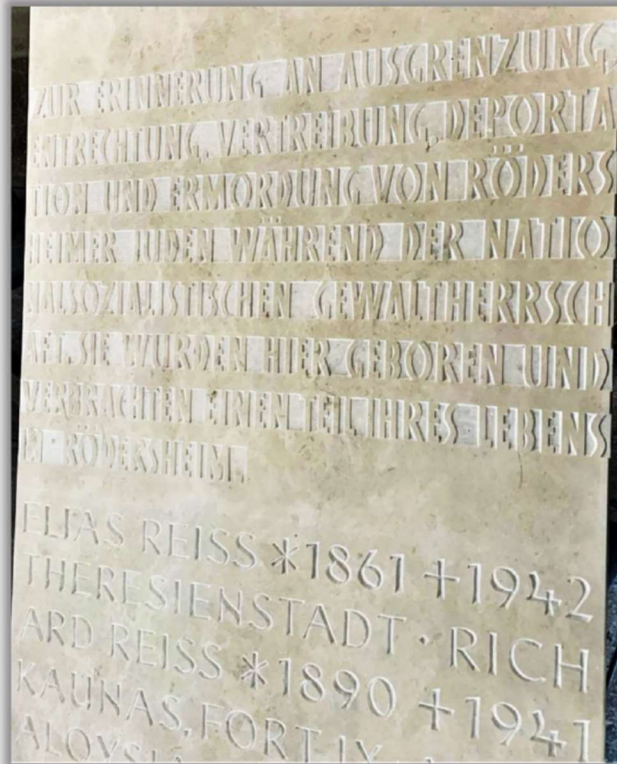 ZUR ERINNERUNG AN AUSGRENZUNG,
ENTRECHTUNG, VERTREIBUNG, DEPORTA
TION UND ERMORDUNG VON RÖDERS
HEIMER JUDEN WÄHREND DER NATIO
NALSOZIALISTISCHEN GEWALTHERRSCH
AFT. SIE WURDEN HIER GEBOREN UND
VERBRACHTEN EINEN TEIL IHRES LEBENS
IN RÖDERSHEIM.
ELIAS REISS *1861 +1942
THERESIENSTADT · RICH
ARD REISS *1890 +1941
KAUNAS, FORT IX